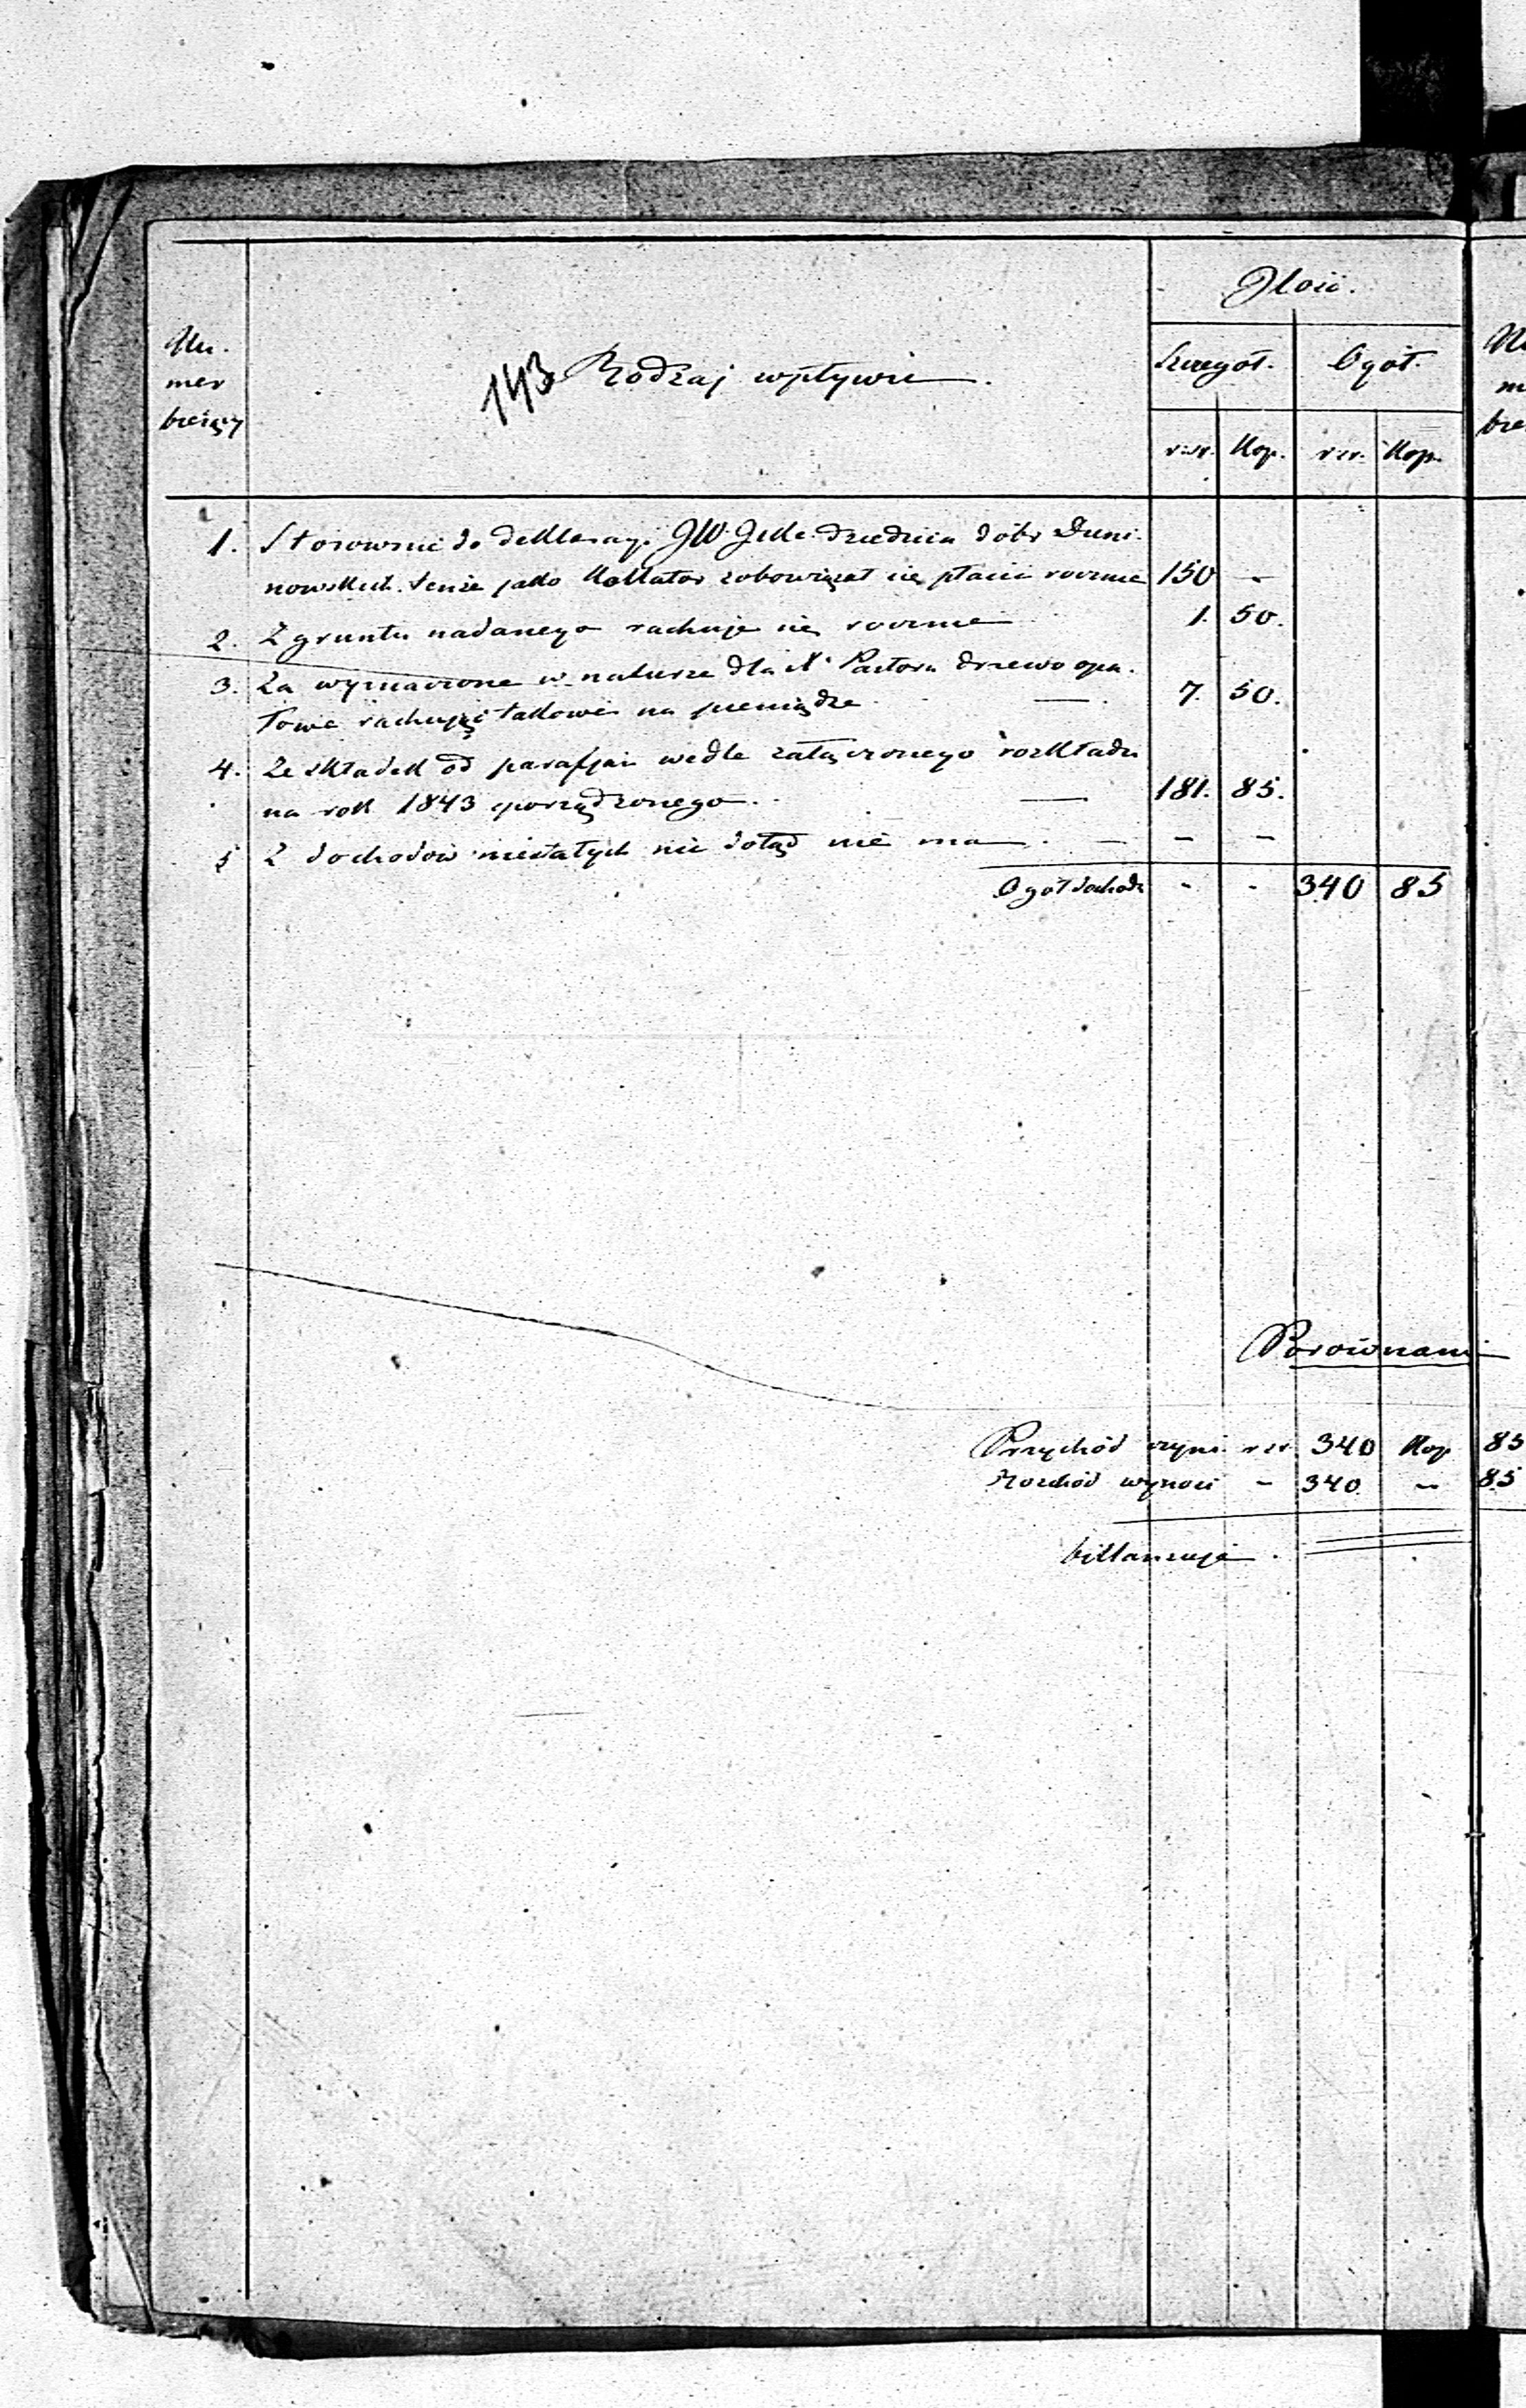 Ilość.
Nu-
mer
bieżący
143 Rodzaj wpływu
Szczegół. Ogół.
rsr. Kop. rsr. Kop.
1. Stosownie do deklaracyi JW. dziedzica dóbr Duni-
nowskich. tenże jako Kollator zobowiązał się płacić rocznie 150 -
2. Z gruntu nadanego rachuje się rocznie 1. 50.
3. Za wyznaczone w naturze dla X. Pastora drzewo opa-
łowe rachując takowe na pieniądze — 7. 50.
4. Ze składek od parafjan wedle załączonego rozkładu
na rok 1843 sporządzonego. — 181. 85.
5 Z dochodów niestałych nic dotąd nie ma. — - -
Ogół dochodu - - 340 85
Porównanie
Przychód czyni rsr. 340 Kop 85
Rozchód wynosi - 340 - 85
billansuje.